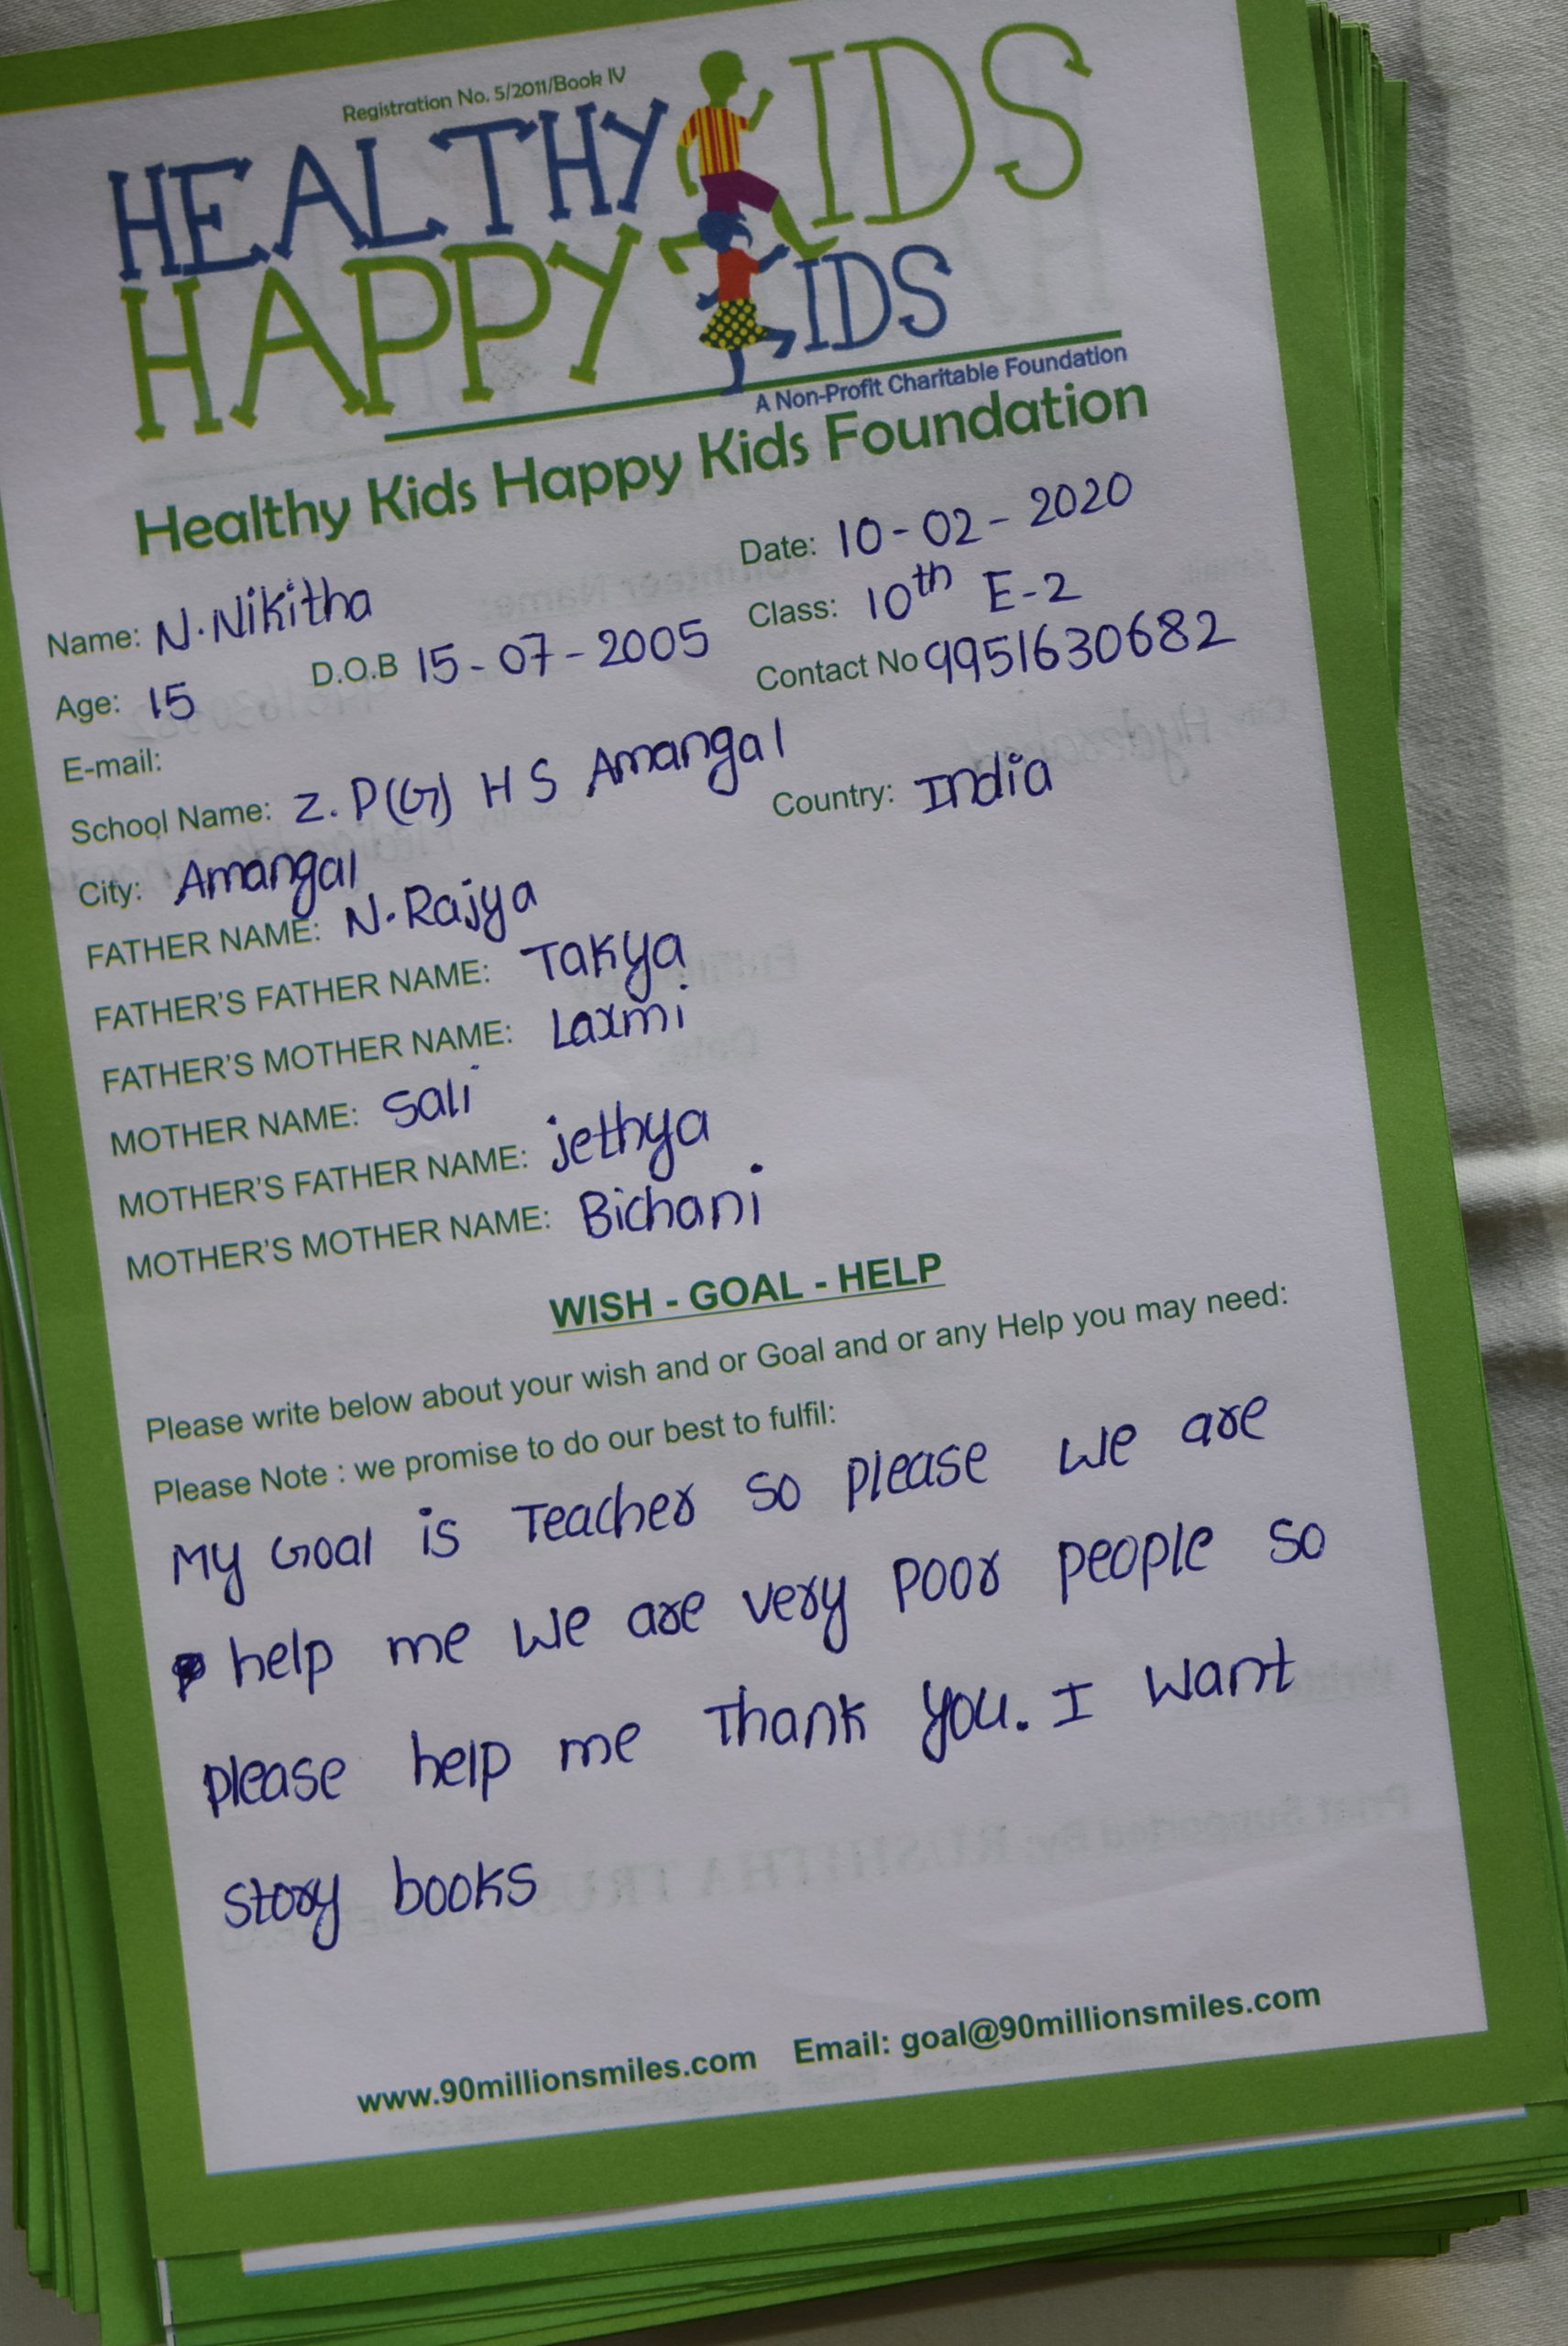 Registration No. 5/2011/Book IV
HEALTHY KIDS
HAPPY KIDS
A Non-Profit Charitable Foundation
Healthy Kids Happy Kids Foundation
Date: 10-02-2020
Name: N.Nikitha
Class: 10th E-2
Age: 15 D.O.B 15-07-2005 Contact No 9951630682
E-mail:
School Name: Z.P(G) H S Amangal
City: Amangal Country: India
FATHER NAME: N.Rajya
FATHER'S FATHER NAME: Takya
FATHER'S MOTHER NAME: Laxmi
MOTHER NAME: Sali
MOTHER'S FATHER NAME: jethya
MOTHER'S MOTHER NAME: Bichani
WISH - GOAL - HELP
Please write below about your wish and or Goal and or any Help you may need:
Please Note : we promise to do our best to fulfil:
My Goal is Teacher so please we are
help me we are very poor people so
please help me Thank you. I want
story books
www.90millionsmiles.com Email: goal@90millionsmiles.com